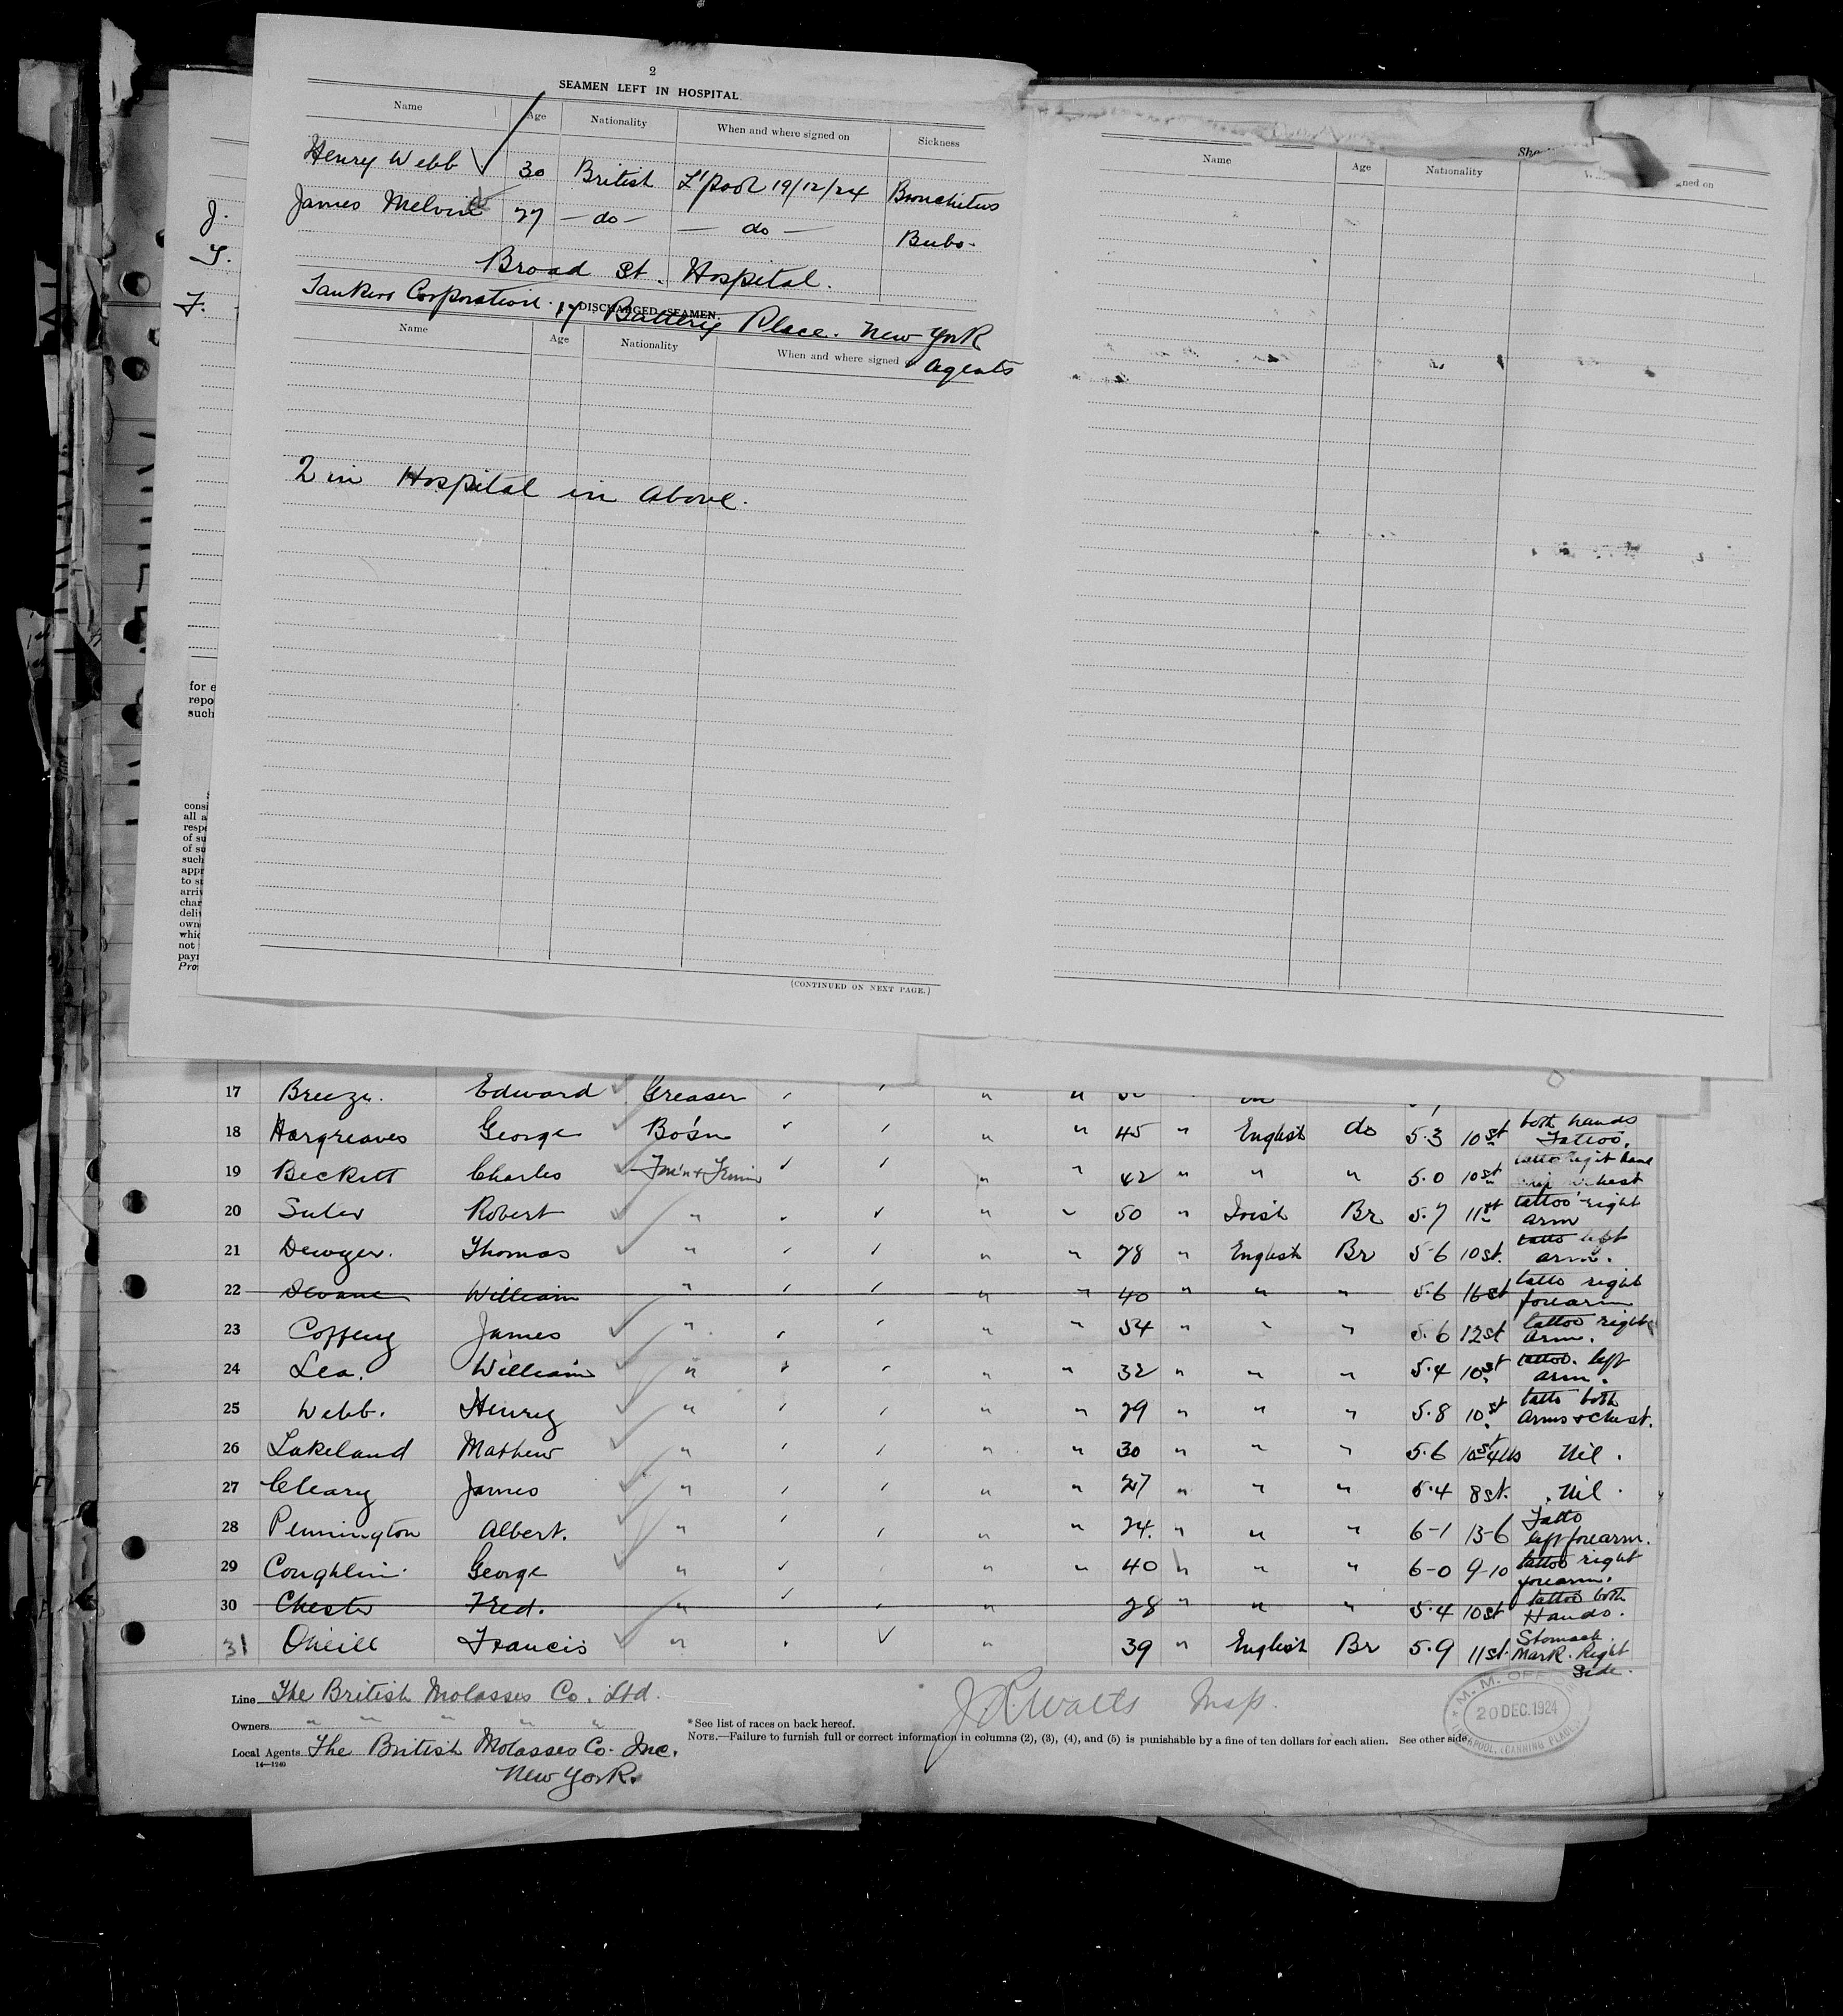 2
SEAMEN LEFT IN HOSPITAL
Name Age Nationality When and where signed on Sickness
Henry Webb 30 British L'pool 19/12/24 Bronchitus
James Melvin 27 - do - - do - Bubo.
Broad St. Hospital.
Tankers Corporation. 17 Battery Place. New York
Agents
DISCHARGED SEAMEN.
Name Age Nationality When and where signed
2 in Hospital in above.
(CONTINUED ON NEXT PAGE.)
Name Age Nationality
J.
T.
F.
for e
repo
such
consi
all a
respe
of su
of su
such
appr
to su
arriv
char
deliv
own
whic
not
payr
Pro
17 Breeze. Edward Greaser " "
18 Hargreaves George Bo'sn " " 45 " English do 5.3 10st both hands Tattoo.
19 Beckett Charles " " 42 " " " 5.0 10st
20 Suler Robert " " " 50 " Irish Br 5.7 11st tattoo right arm
21 Dewyer. Thomas " " " 28 " English Br 5-6 10st. tatto left arm.
22 William " " " 40 " " " 5.6 16st tatto right forearm
23 Coffey James " " " 54 " " " 5.6 12st tattoo right arm.
24 Lea. William " " " 32 " " " 5.4 10st tattoo. left arm.
25 Webb. Henry " " " 29 " " " 5.8 10st tatto both arms & chest.
26 Lakeland Mathew " " " 30 " " " 5.6 10st 4lbs Nil.
27 Cleary James " " " 27 " " " 5.4 8st. Nil.
28 Pennington Albert. " " " 24. " " " 6-1 13-6 Tatto left forearm.
29 Coughlin. George " " " 40 " " " 6-0 9-10 tattoo right forearm.
30 Chester Fred. " " 28 " " " 5.4 10st tattoo both Hands.
31 Oneill Francis " " 39 " English Br 5.9 11st. Stomach. Mark. Right Side.
Line The British Molasses Co. Ltd.
Owners " " " " "
Local Agents The British Molasses Co. Inc.
14—1240
New York.
J R Watts
*See list of races on back hereof.
NOTE.—Failure to furnish full or correct information in columns (2), (3), (4), and (5) is punishable by a fine of ten dollars for each alien. See other side.
M. M. OFF
20 DEC. 1924
CANNING PLACE